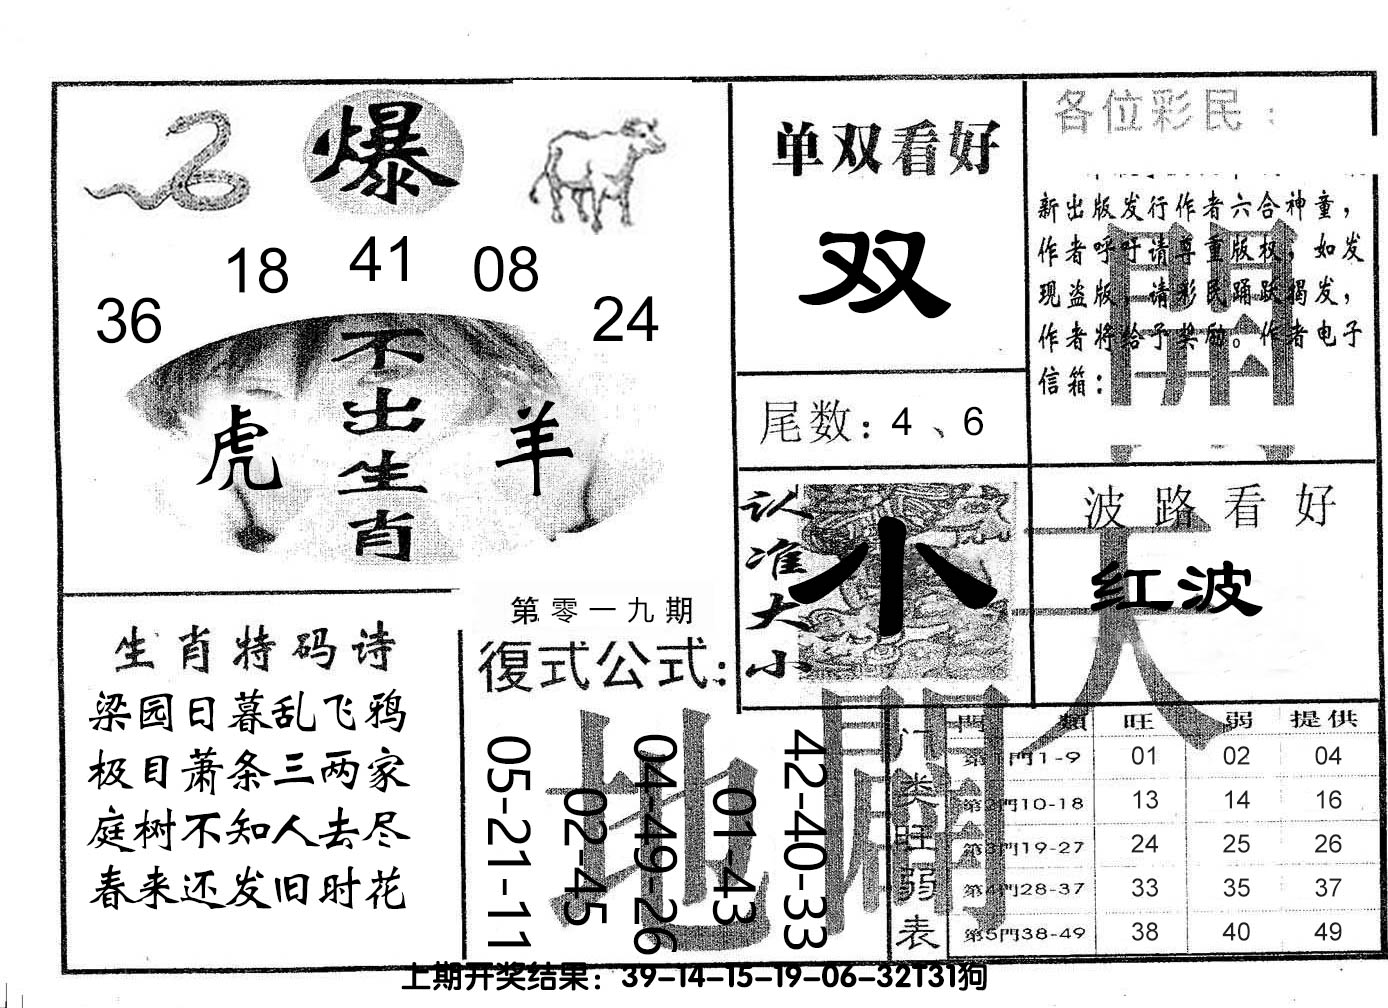 爆
18 41 08
36 24
不出生肖
虎 羊
单双看好
双
尾数：4、6
各位彩民：
新出版发行作者六合神童，
作者呼吁请尊重版权，如发
现盗版，请彩民踊跃揭发，
作者将给予奖励。作者电子
信箱：
開
认准大小
小
波路看好
红波
天
生肖特码诗
梁园日暮乱飞鸦
极目萧条三两家
庭树不知人去尽
春来还发旧时花
第零一九期
復式公式：
05-21-11
02-45
04-49-26
01-43
42-40-33
地
门类旺弱表
門類 旺 弱 提供
第1門1-9 01 02 04
第2門10-18 13 14 16
第3門19-27 24 25 26
第4門28-37 33 35 37
第5門38-49 38 40 49
上期开奖结果：39-14-15-19-06-32T31狗